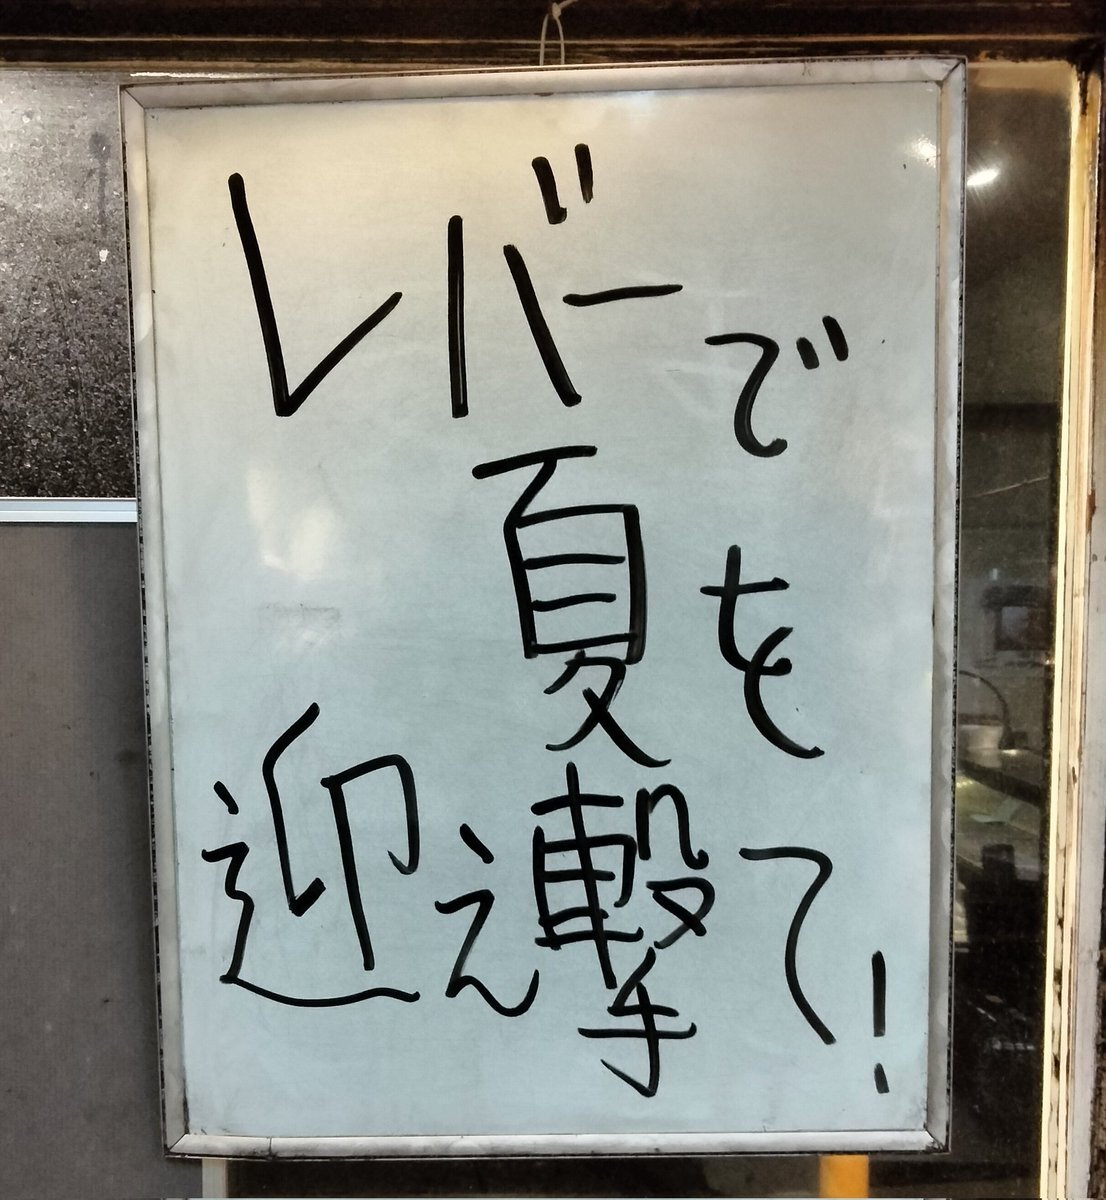 レバーで
夏を
迎え撃て!